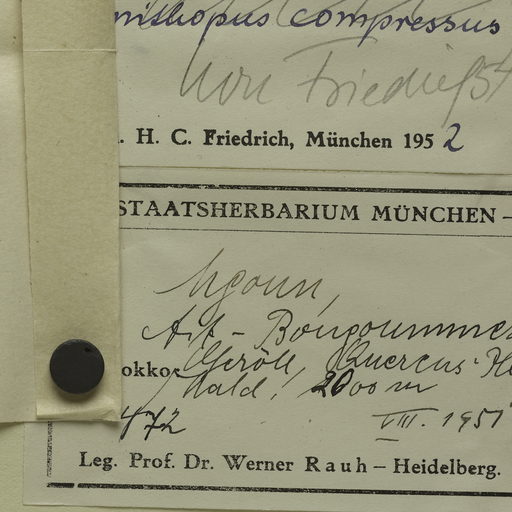 nithopus compressus
. H. C. Friedrich, München 1952
STAATSHERBARIUM MÜNCHEN –
Ait – Bougoummez
okko Geröll, Quercus
Wald, 2000 m
472 VIII. 1951
Leg. Prof. Dr. Werner Rauh – Heidelberg.